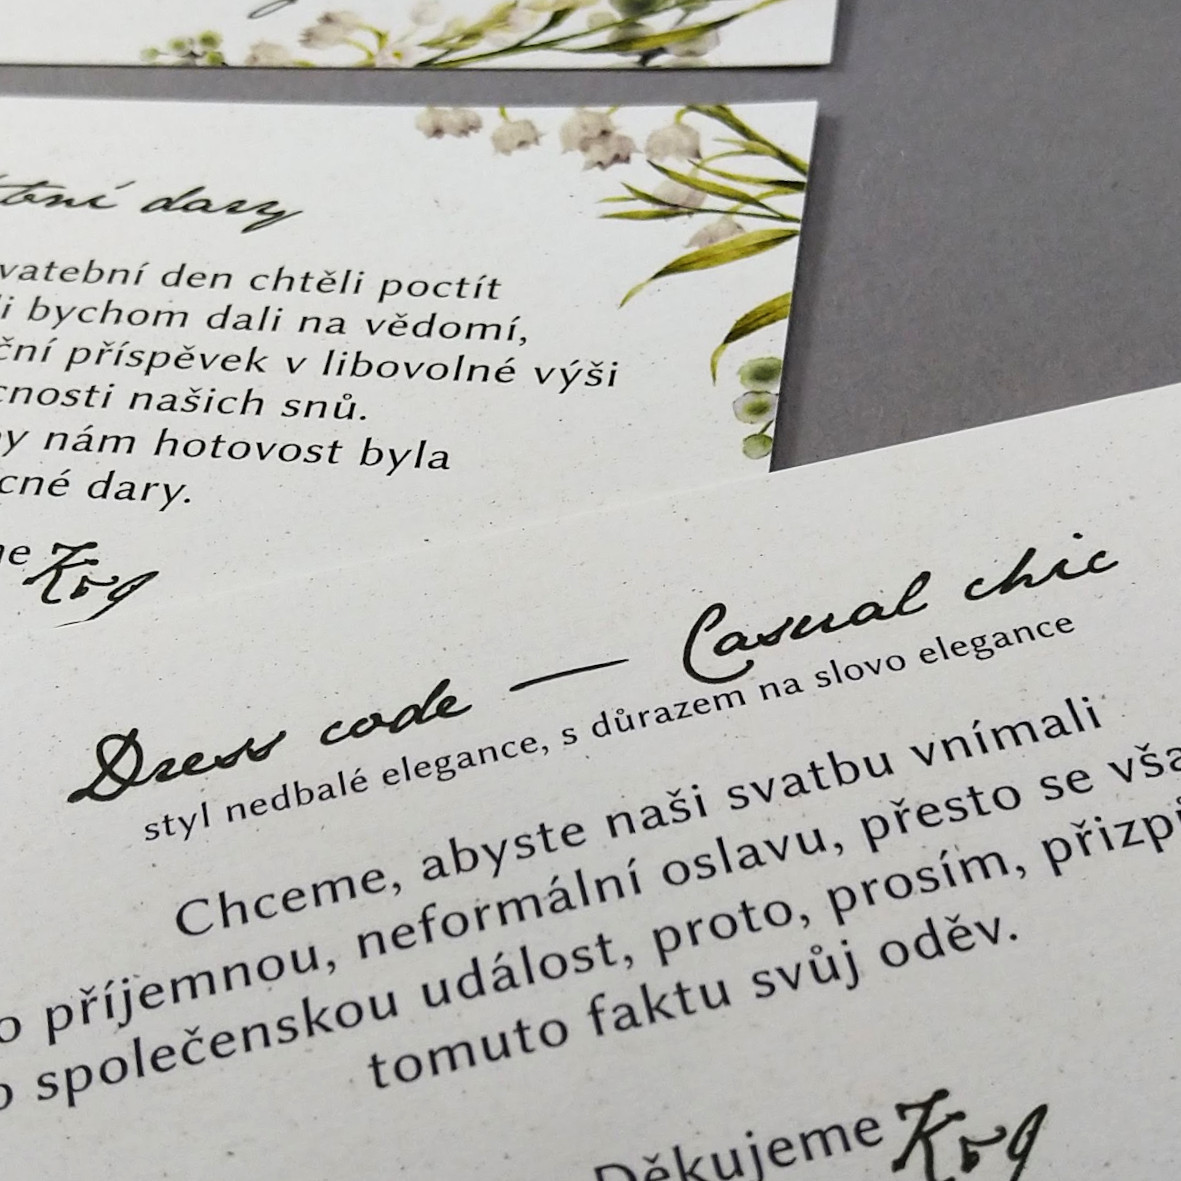 dary
den chtěli poctít
bychom dali na vědomí,
příspěvek v libovolné výši
našich snů.
nám hotovost byla
dary.
Dress code — Casual chic
styl nedbalé elegance, s důrazem na slovo elegance
Chceme, abyste naši svatbu vnímali
příjemnou, neformální oslavu, přesto se
společenskou událost, proto, prosím,
tomuto faktu svůj oděv.
Děkujeme